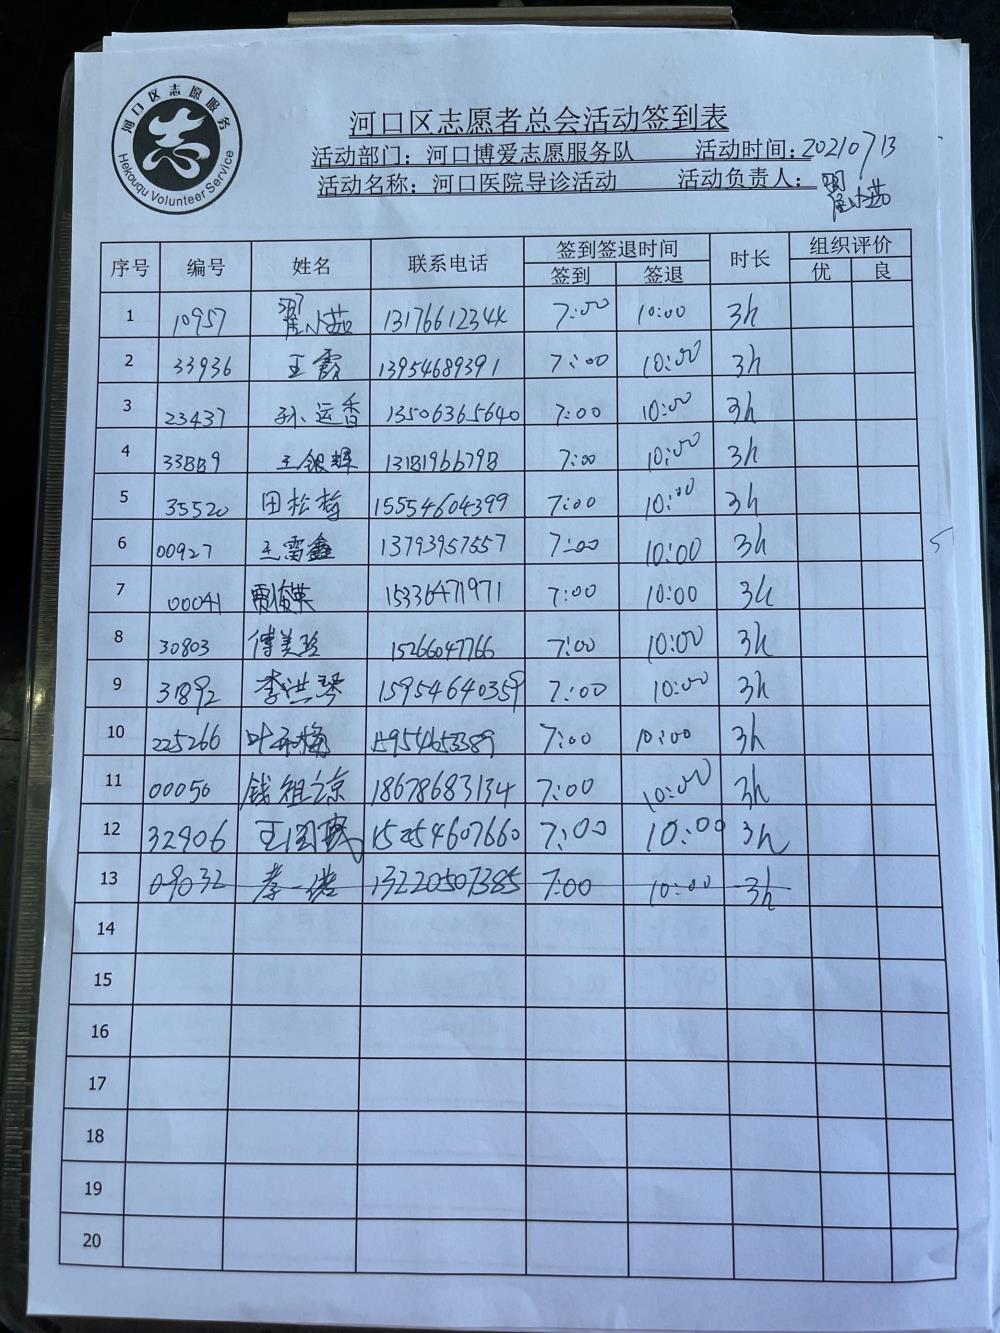 河口区志愿服务
志
Hekouqu Volunteer Service
河口区志愿者总会活动签到表
活动部门：河口博爱志愿服务队 活动时间：20210713
活动名称：河口医院导诊活动 活动负责人：
序号 编号 姓名 联系电话 签到签退时间 时长 组织评价
签到 签退 优 良
1 10957 13176612344 7:00 10:00 3h
2 33936 王霞 13954689391 7:00 10:00 3h
3 23437 孙运香 13506365640 7:00 10:00 3h
4 王银辉 7:00 10:00 3h
5 35520 田松梅 15554604399 7:00 10:00 3h
6 00927 王雷鑫 13793957557 7:00 10:00 3h
7 00041 贾俊英 15336471971 7:00 10:00 3h
8 30803 傅美玲 15266047766 7:00 10:00 3h
9 31892 李洪琴 15954640359 7:00 10:00 3h
10 225266 15954653389 7:00 10:00 3h
11 00050 钱祖京 18678683134 7:00 10:00 3h
12 32906 15254607660 7:00 10:00 3h
13 09032 13220507385 7:00 10:00 3h
14
15
16
17
18
19
20